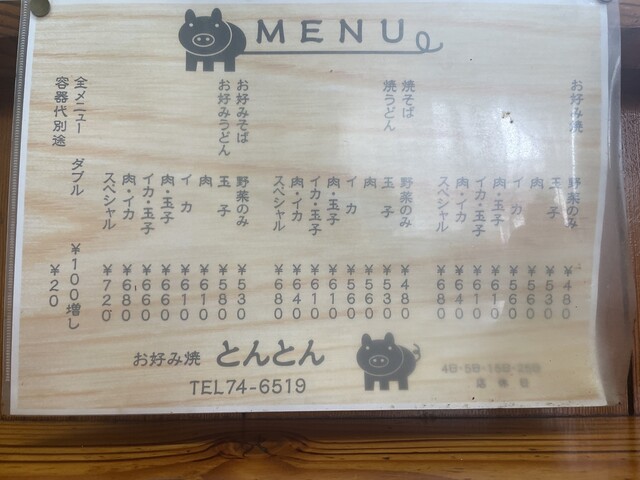 MENU
お好み焼
野菜のみ ¥480
玉子 ¥530
肉 ¥560
イカ ¥560
肉・玉子 ¥610
イカ・玉子 ¥610
肉・イカ ¥640
スペシャル ¥680
焼そば
焼うどん
野菜のみ ¥480
玉子 ¥530
肉 ¥560
イカ ¥560
肉・玉子 ¥610
イカ・玉子 ¥610
肉・イカ ¥640
スペシャル ¥680
お好みそば
お好みうどん
野菜のみ ¥530
玉子 ¥580
肉 ¥610
イカ ¥610
肉・玉子 ¥660
イカ・玉子 ¥660
肉・イカ ¥680
スペシャル ¥720
全メニュー ダブル ¥100増し
容器代別途 ¥20
お好み焼 とんとん
TEL74-6519
店休日